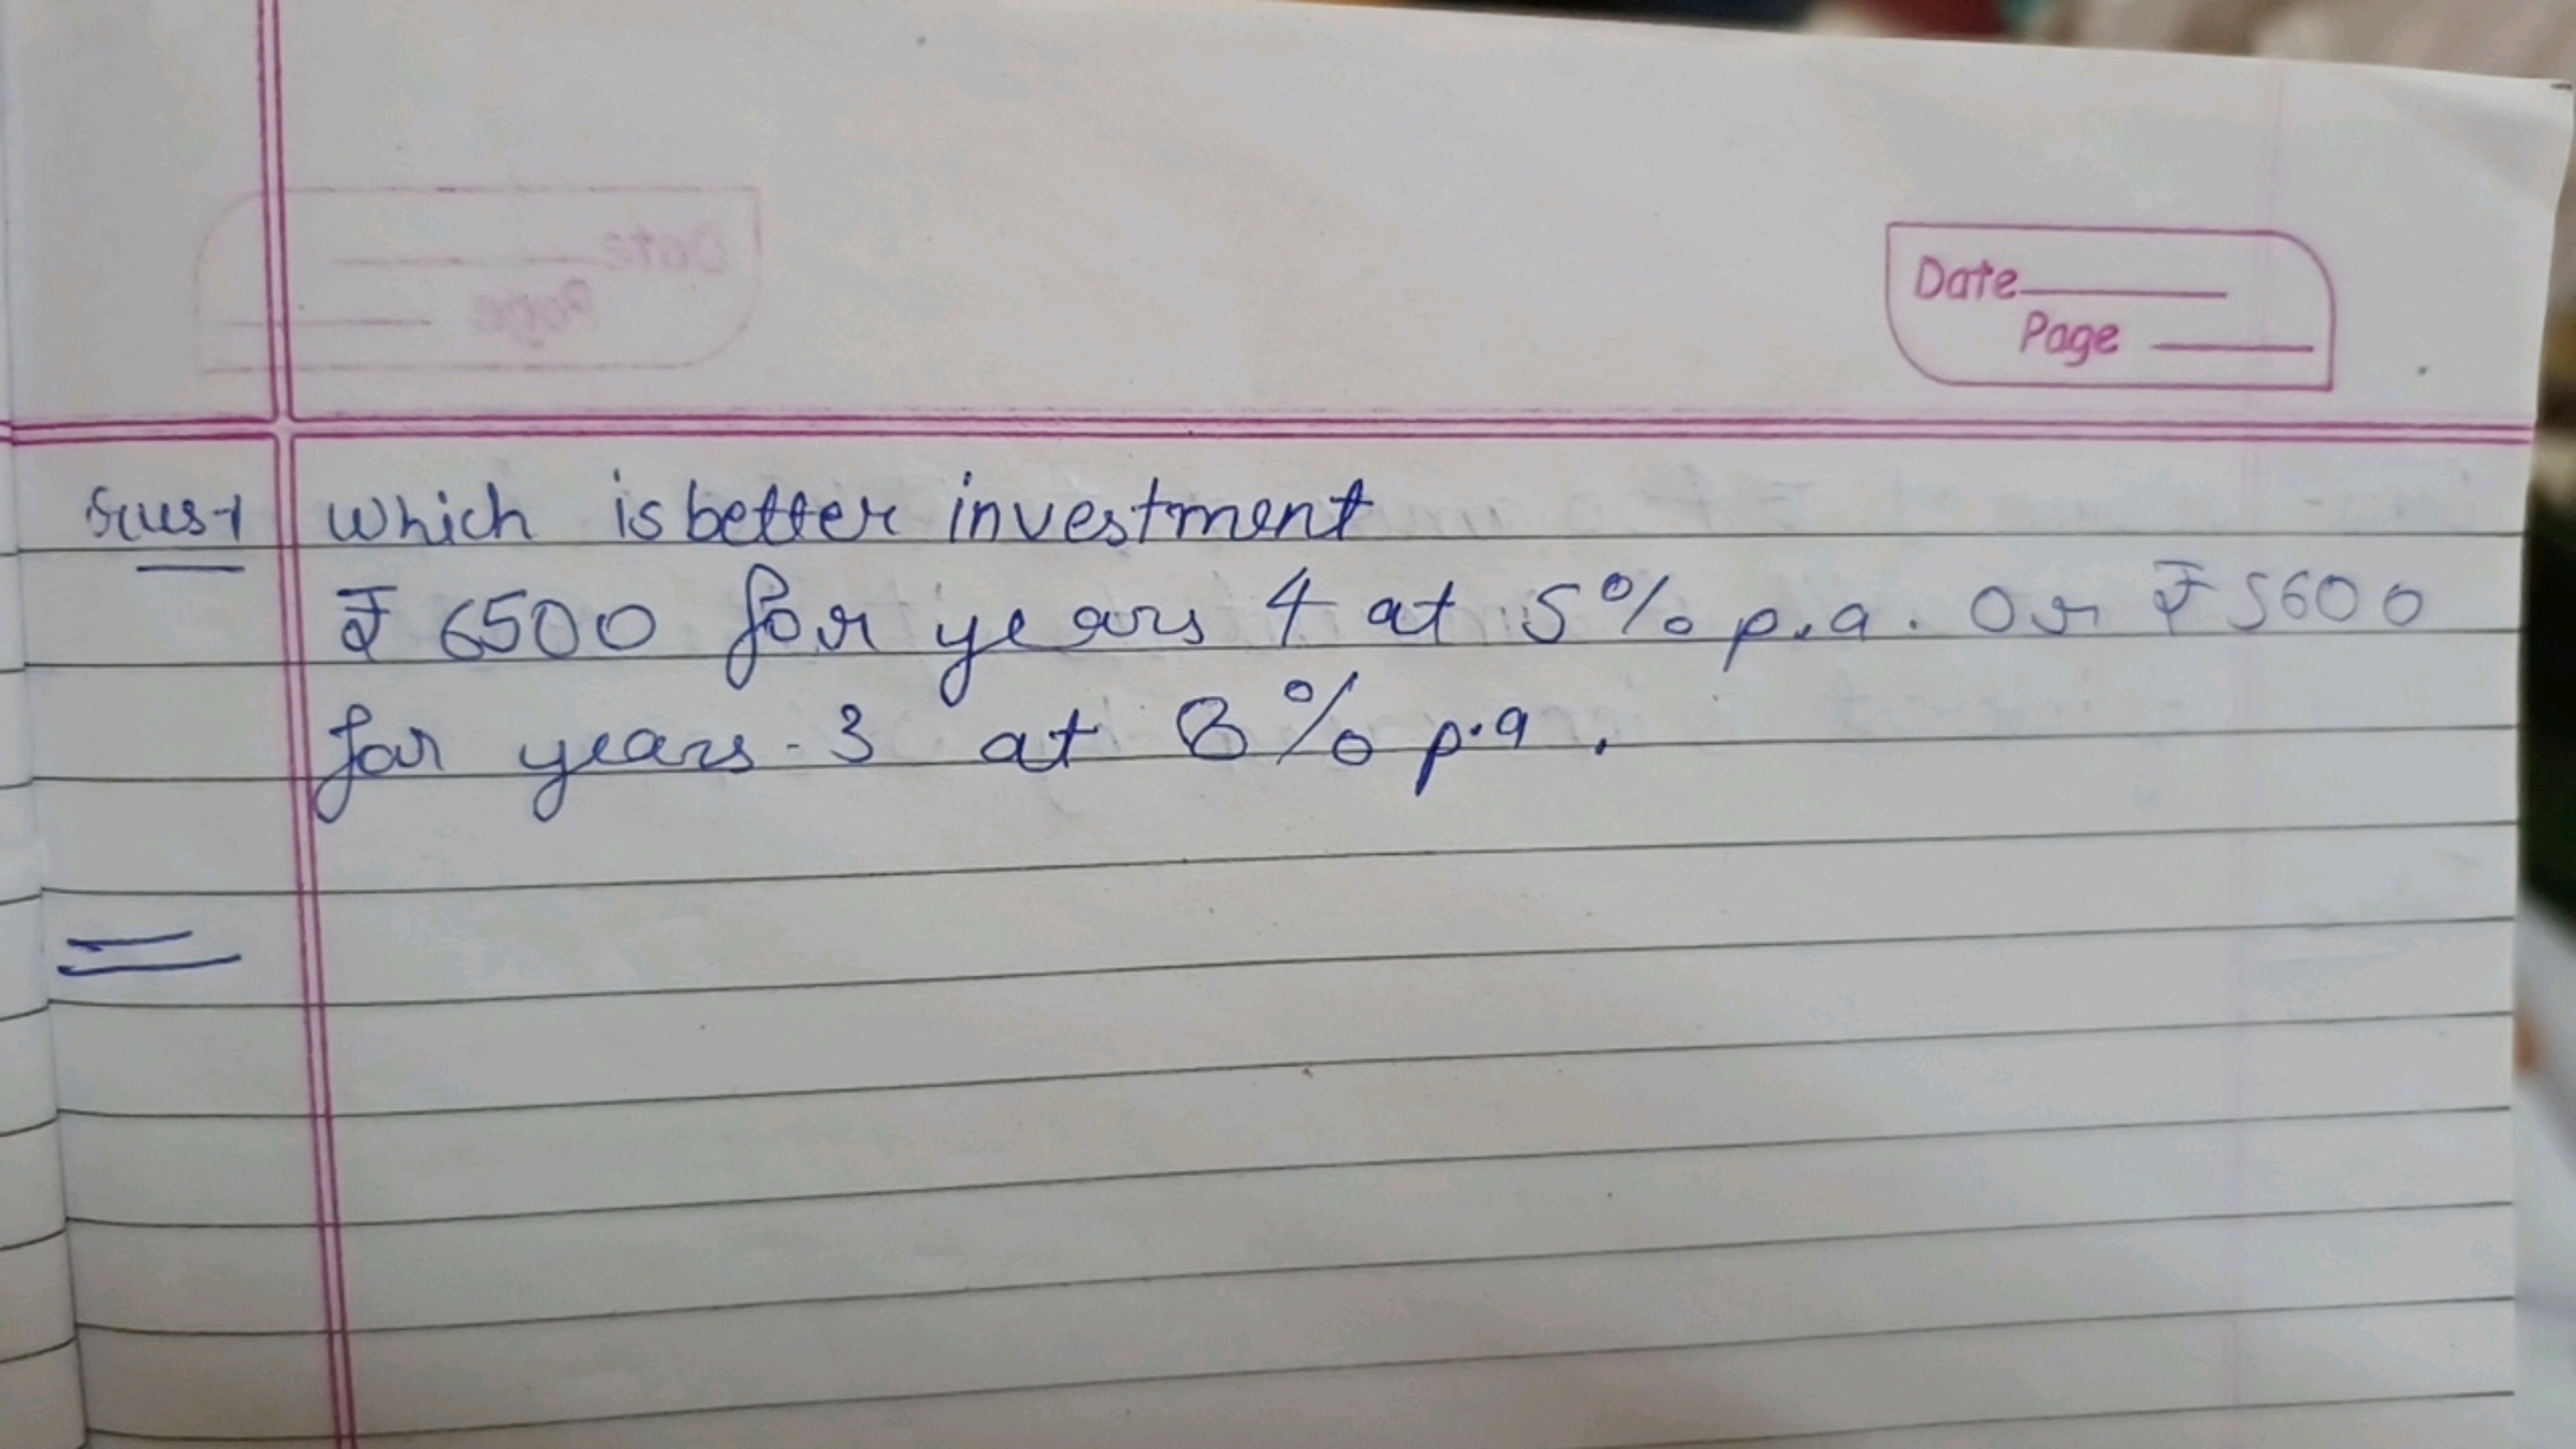 Date
Page
Ques-1 which is better investment
₹ 6500 for years 4 at 5% p.a. Or ₹ 5600
for years - 3 at 8% p.a.